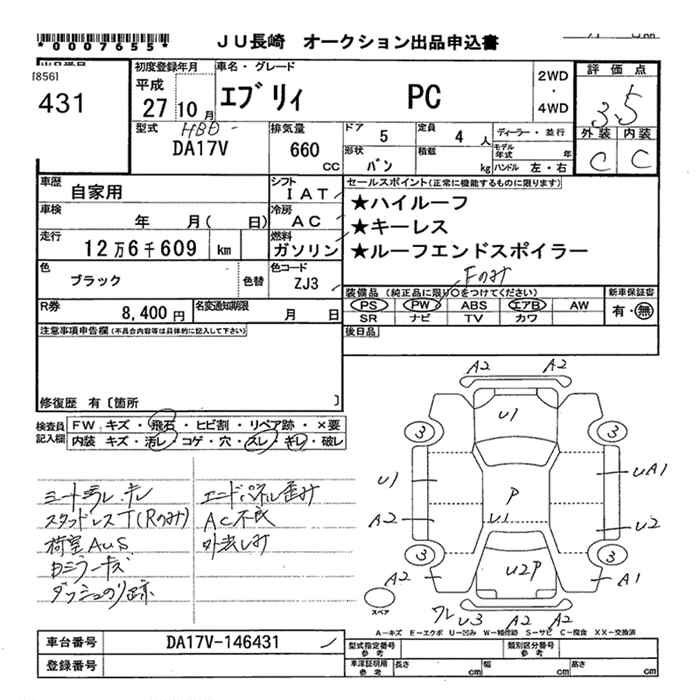 *0007655*
JU長崎 オークション出品申込書
[856]
431
初度登録年月
平成
27 10 月
車名・グレード
エブリィ PC
2WD
・
4WD
評価点
3.5
外装 内装
C C
型式
HBD
DA17V
排気量
660
CC
ドア 5
定員 4 人
ディーラー・並行
形状 バン
積載 kg
モデル年式 年
ハンドル 左・右
車歴
自家用
シフト
IAT
セールスポイント(正常に機能するものに限ります)
★ハイルーフ
★キーレス
★ルーフエンドスポイラー
車検
年 月( 日)
冷房
AC
走行
12万6千609 km
燃料
ガソリン
色
ブラック
色替
色コード
ZJ3
Fのみ
装備品(純正品に限り○をつけてください)
PS PW ABS エアB AW
SR ナビ TV カワ
新車保証書
有・無
R券
8,400円
名変通知期限
月 日
後日品
注意事項申告欄(不具合内容等は具体的に記入して下さい)
修復歴 有〔箇所 〕
検査員
記入欄
FW キズ・飛石・ヒビ割・リペア跡・×要
内装 キズ・汚レ・コゲ・穴・スレ・キレ・破レ
シートスレ、キレ
スタッドレスT(Rのみ)
荷室AUS
ダッシュのり跡
エンドパネル歪み
AC不良
A2 A2
U1
3 3
U1 UA1
P
A2 U1 U2
3 3
A2 U2P A1
スペア
ワレ U3 A2 A2
A-キズ E-エクボ U-凹み W-補修跡 S-サビ C-腐食 XX-交換済
車台番号
DA17V-146431
登録番号
型式指定番号
参考
類別区分番号
参考
車庫証明用
参考
長さ cm 幅 cm 高さ cm